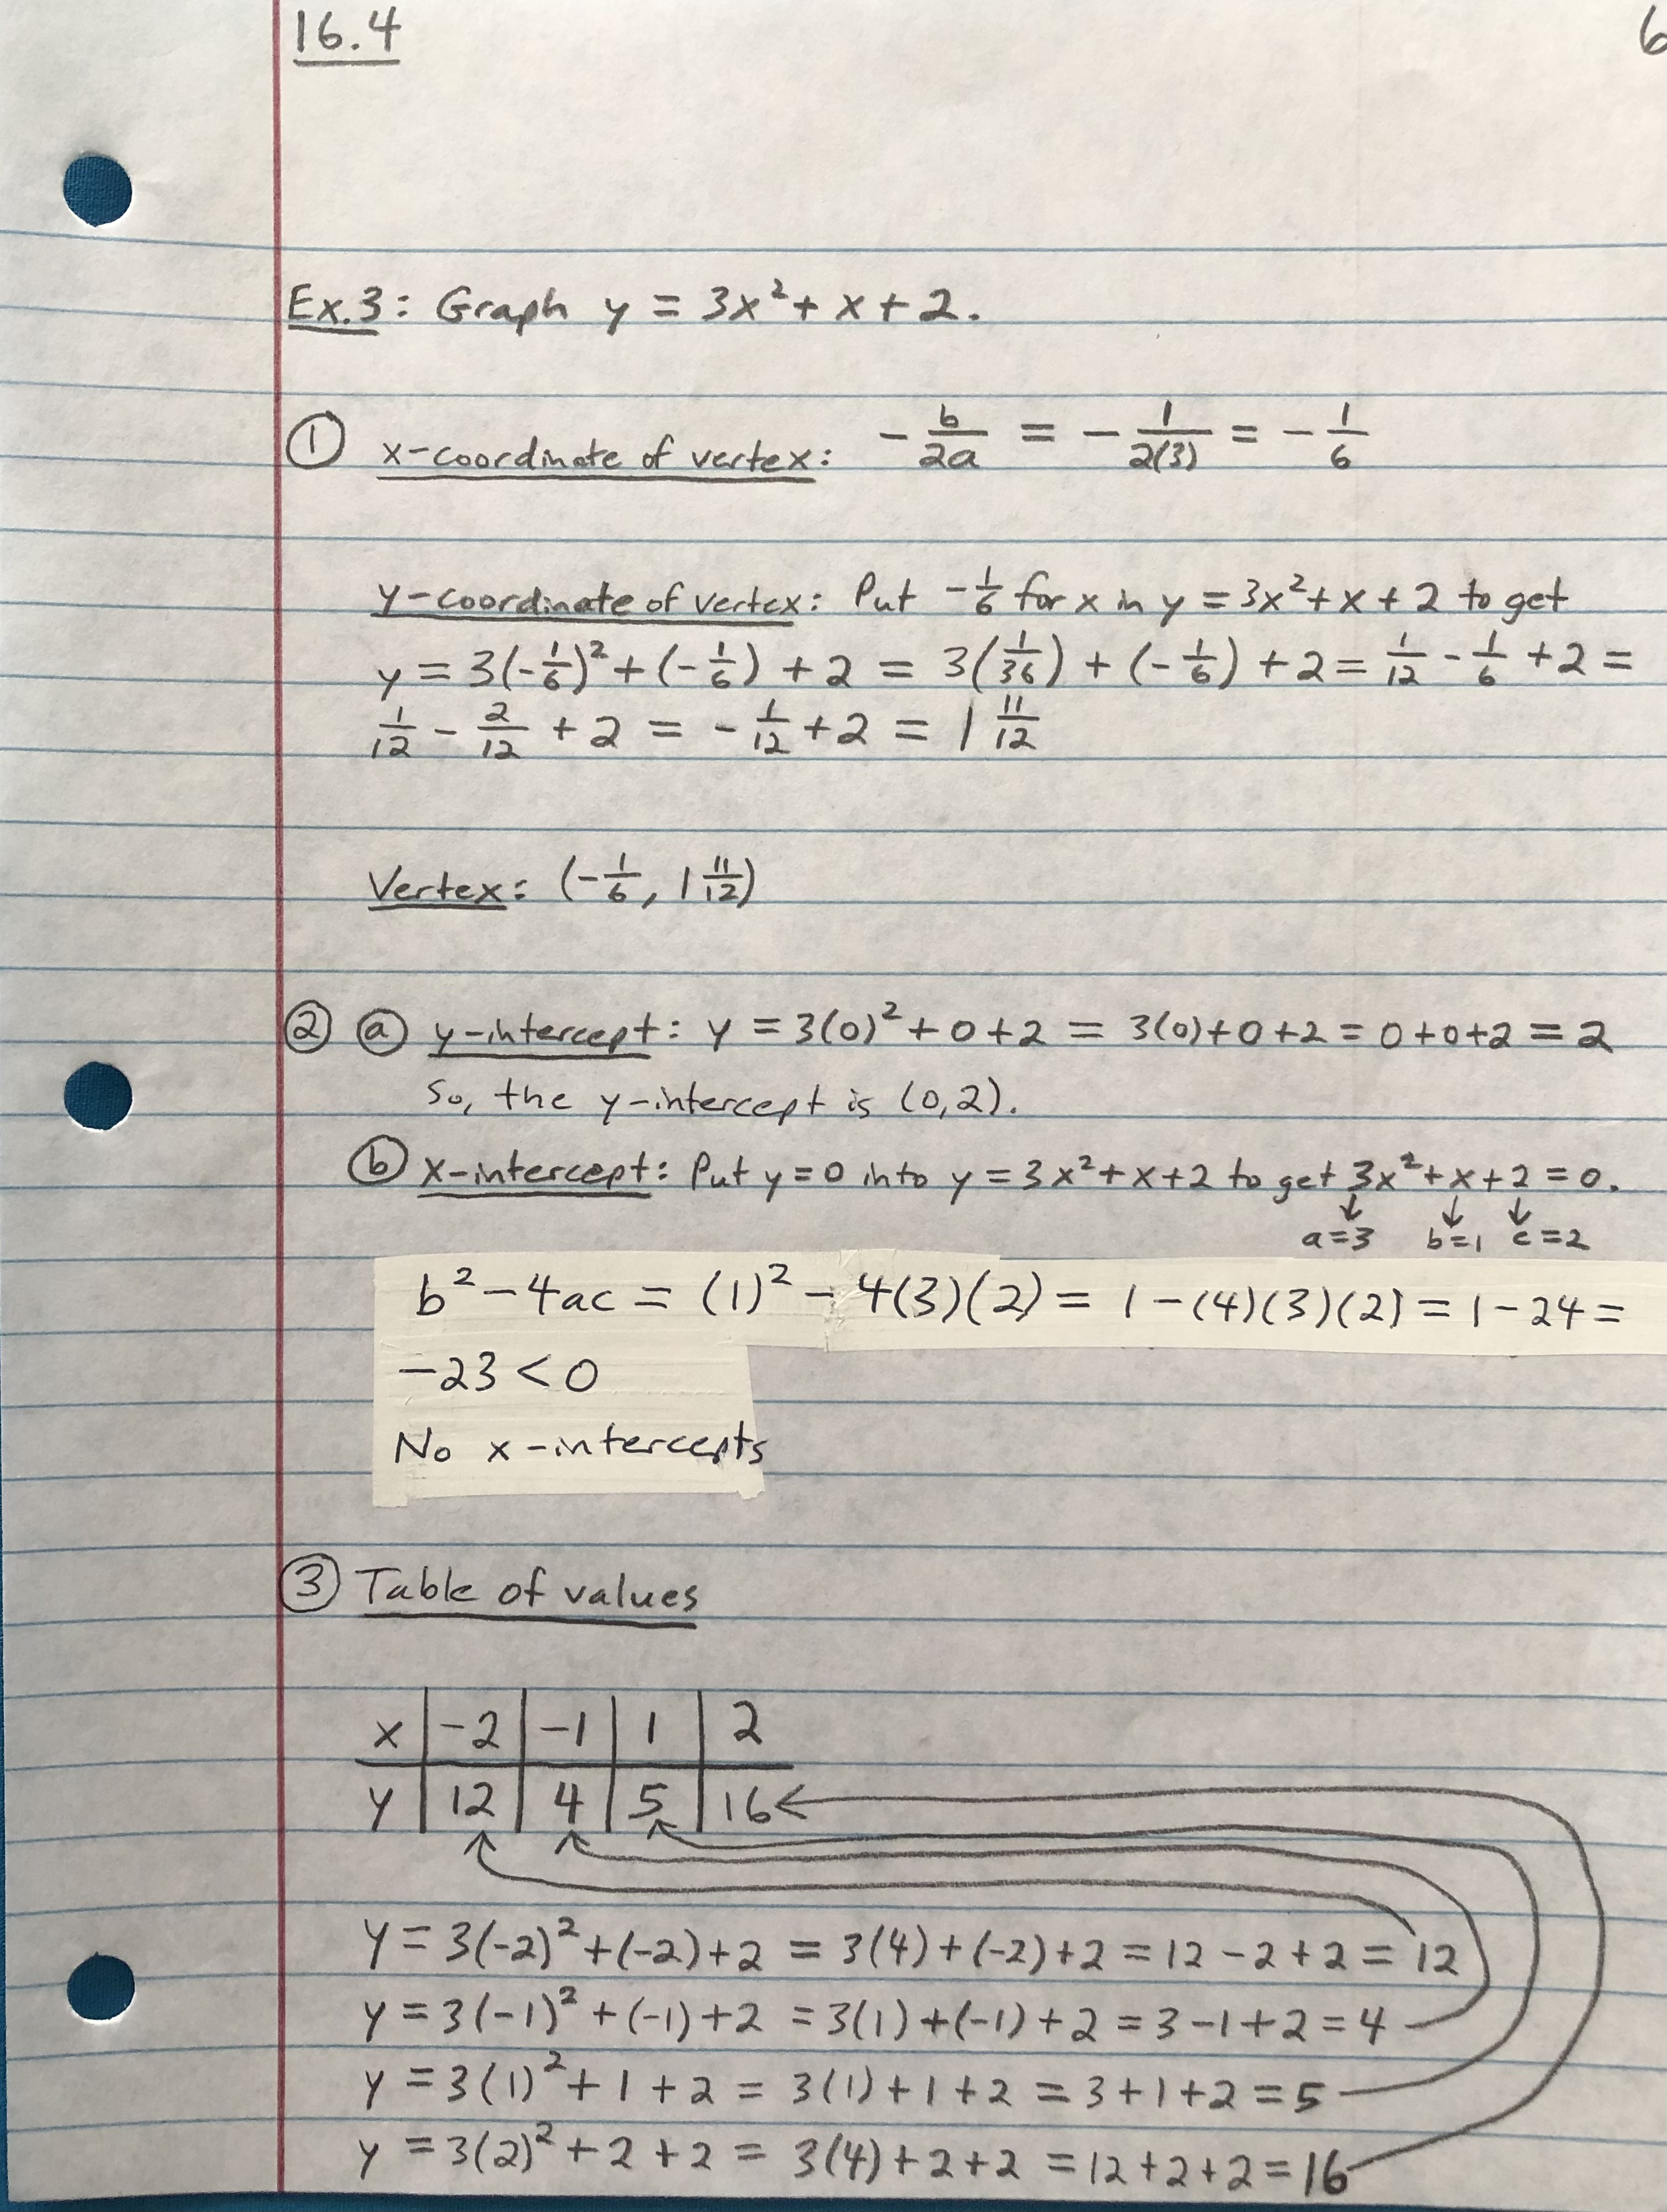 16.4
6
Ex.3: Graph y = 3x² + x + 2.
① x-coordinate of vertex: -b/2a = -1/2(3) = -1/6
y-coordinate of vertex: Put -1/6 for x in y = 3x² + x + 2 to get
y = 3(-1/6)² + (-1/6) + 2 = 3(1/36) + (-1/6) + 2 = 1/12 - 1/6 + 2 =
1/12 - 2/12 + 2 = -1/12 + 2 = 1 11/12
Vertex: (-1/6, 1 11/12)
② ⓐ y-intercept: y = 3(0)² + 0 + 2 = 3(0) + 0 + 2 = 0 + 0 + 2 = 2
So, the y-intercept is (0,2).
ⓑ x-intercept: Put y = 0 into y = 3x² + x + 2 to get 3x² + x + 2 = 0.
↓ ↓ ↓
a=3 b=1 c=2
b² - 4ac = (1)² - 4(3)(2) = 1 - (4)(3)(2) = 1 - 24 =
-23 < 0
No x-intercepts
③ Table of values
x | -2 | -1 | 1 | 2
y | 12 | 4 | 5 | 16
y = 3(-2)² + (-2) + 2 = 3(4) + (-2) + 2 = 12 - 2 + 2 = 12
y = 3(-1)² + (-1) + 2 = 3(1) + (-1) + 2 = 3 - 1 + 2 = 4
y = 3(1)² + 1 + 2 = 3(1) + 1 + 2 = 3 + 1 + 2 = 5
y = 3(2)² + 2 + 2 = 3(4) + 2 + 2 = 12 + 2 + 2 = 16